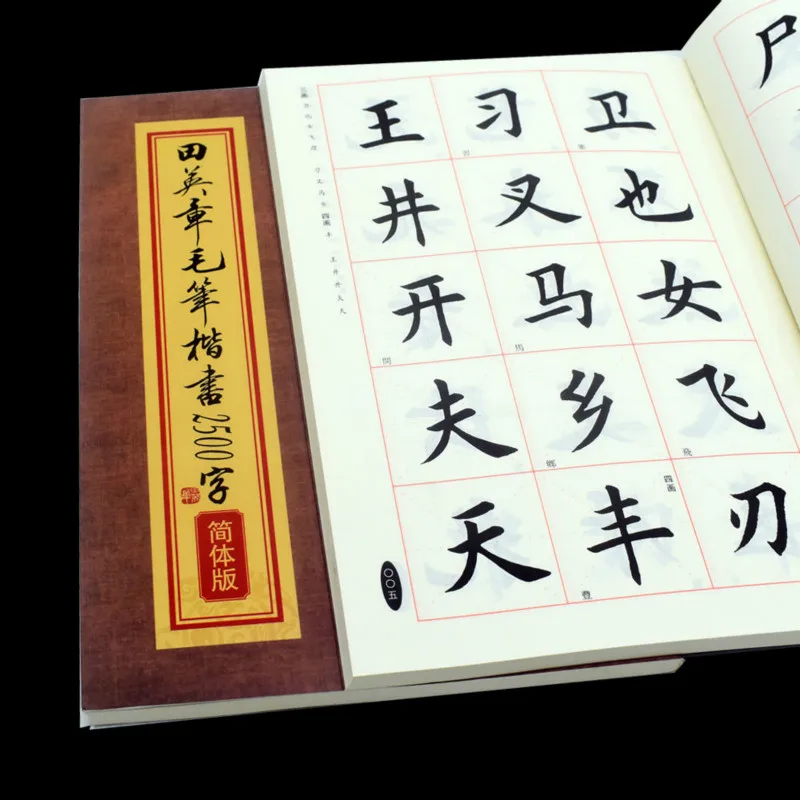 田英章毛筆楷書2500字
简体版
卫也女飞刃
飛
习叉马乡丰
馬
鄉
四画
王井开夫天
開
三画
四画
〇〇五